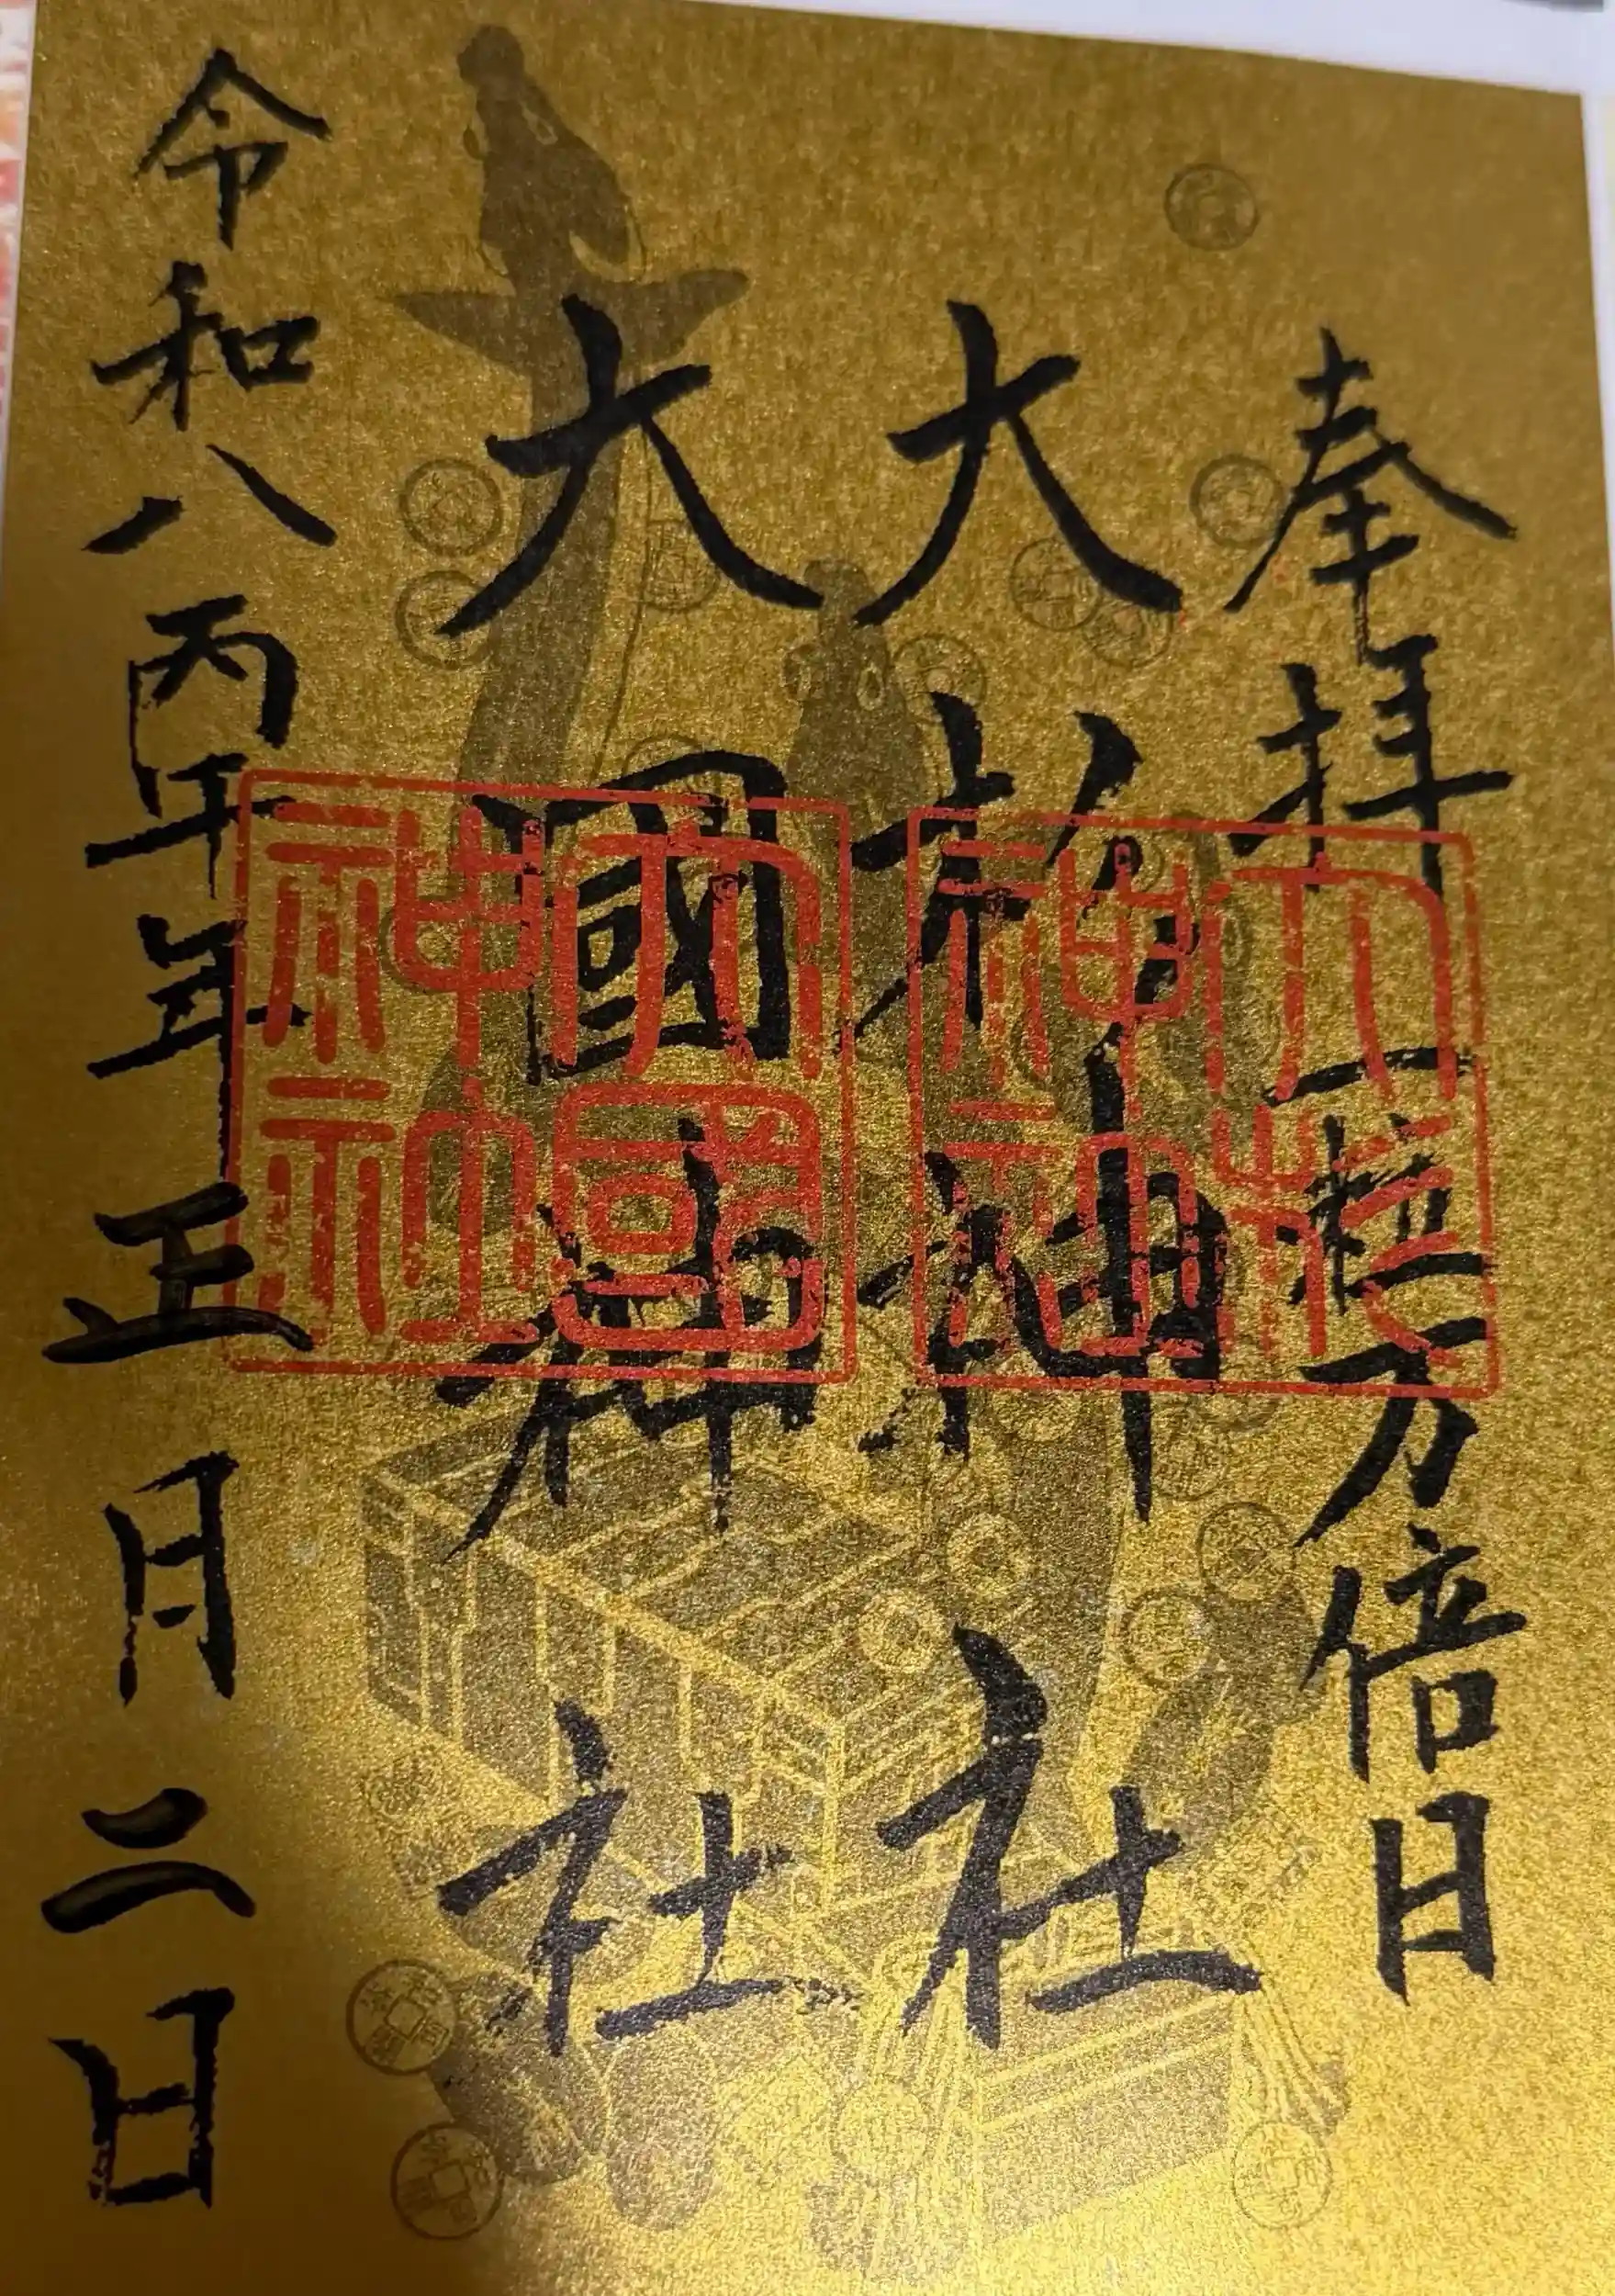 奉拝 一粒万倍日
大杉神社
大國神社
令和八丙午年正月二日
大杉神社
大國神社